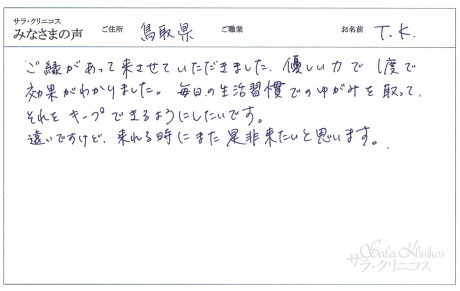 サラ・クリニコス
みなさまの声 ご住所 鳥取県 ご職業 お名前 T.K.
ご縁があって来させていただきました。優しい力で1度で
効果がわかりました。毎日の生活習慣でのゆがみを取って、
それをキープできるようにしたいです。
遠いですけど、来れる時にまた是非来たいと思います。
Sala Klinikos
サラ・クリニコス